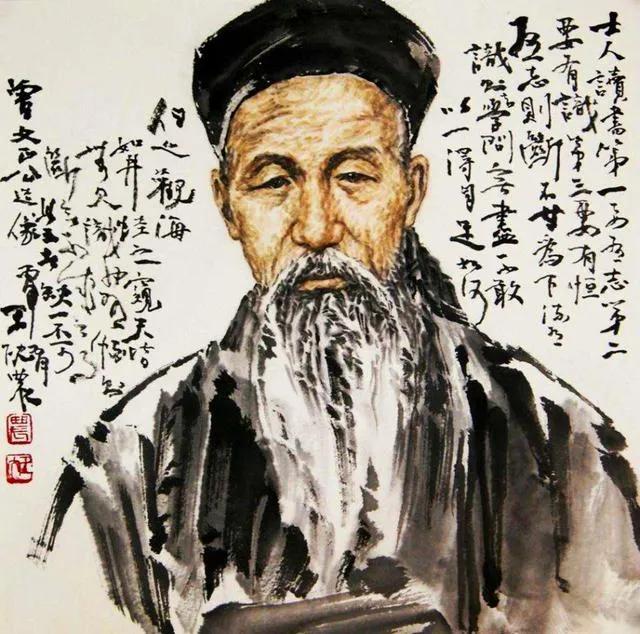 士人讀書第一要有志第二
要有識第三要有恒
有志則斷不甘為下流有
識知學問無盡不敢
以一得自足如河
伯之觀海
如井蛙之窺天皆
無見識也有恒則
斷無不成之事
此三者缺一不可
曾文正公造像
劉
農